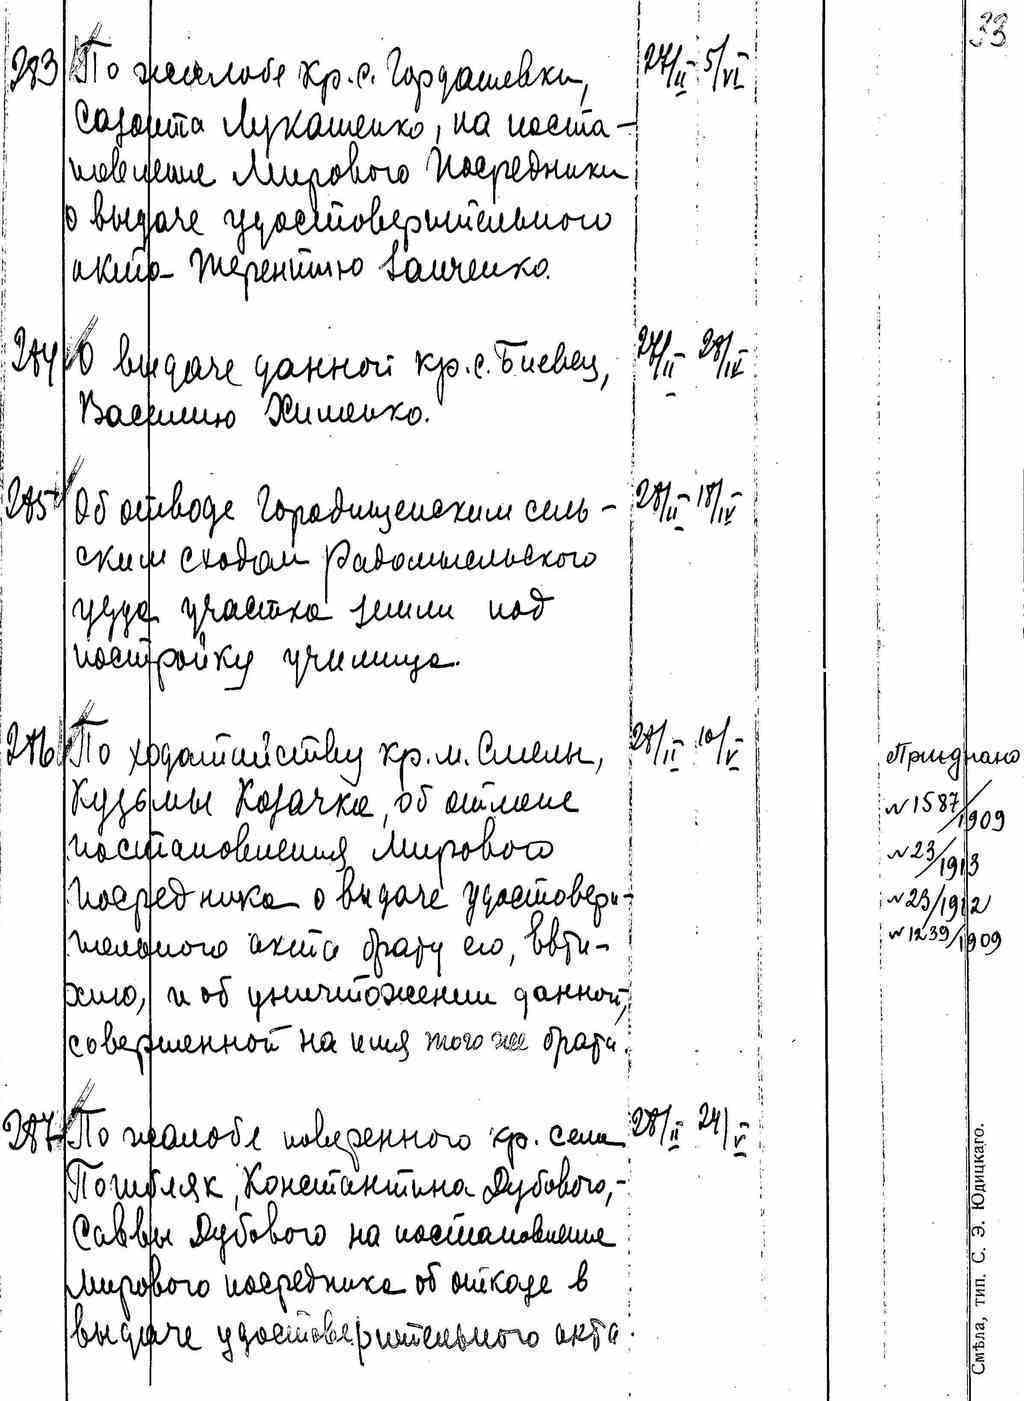 33
283 По жалобе кр. с. Гордашевки, 27/II 5/VI
Созонта Лукашенко, на поста-
новление Мирового Посредника
о выдаче удостоверительного
акта Терентию Заиченко.
284 О выдаче данной кр. с. Биевец, 27/II 28/IV
Василию Хименко.
285 Об отводе Городищенским сель- 28/II 18/IV
ским сходом Радомысльского
уезда участка земли под
постройку училища.
286 По ходатайству кр. м. Смелы, 28/II 10/V Приєднано
Кузьмы Козачка, об отмене N 1587/1909
постановления Мирового N 23/1913
посредника о выдаче удостовери- N 23/1912
тельного акта брату его, Евти- N 1239/1909
хию, и об уничтожении данной,
совершенной на имя того же брата.
287 По жалобе поверенного кр. села 28/II 24/V
Погибляк, Константина Дубового,-
Саввы Дубового на постановление
мирового посредника об отказе в
выдаче удостоверительного акта.
Смѣла, тип. С. Э. Юдицкаго.